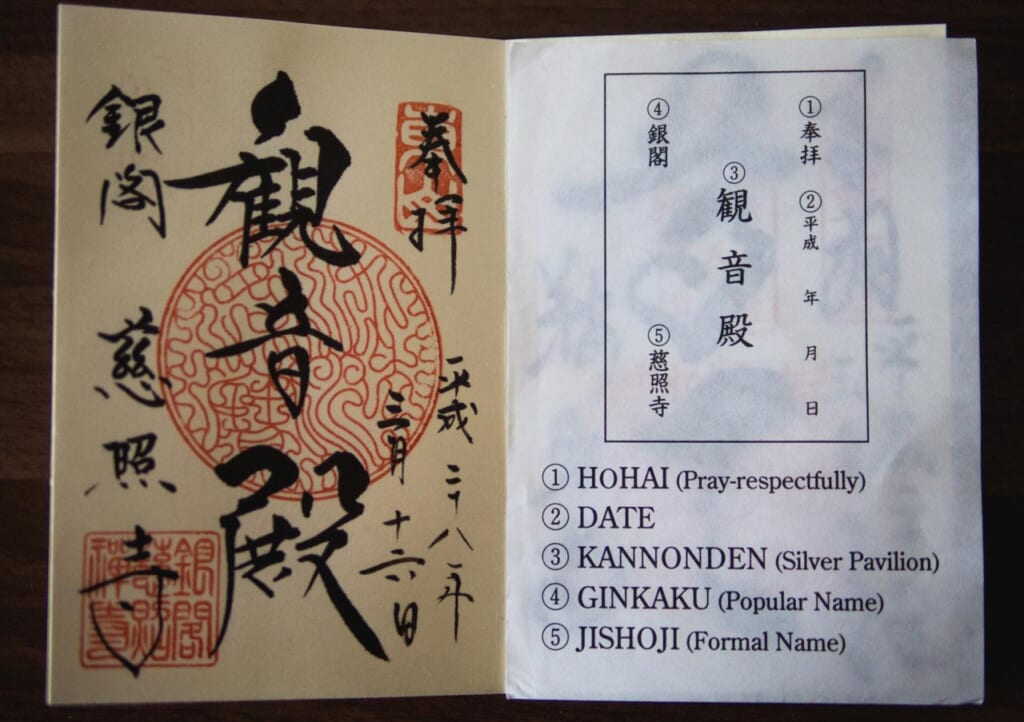 奉拝
平成 二十八年
三月 十六日
観音殿
銀閣 慈照寺
銀閣
慈照
禅寺
①奉拝 ②平成 年 月 日
③観音殿
④銀閣 ⑤慈照寺
① HOHAI (Pray-respectfully)
② DATE
③ KANNONDEN (Silver Pavilion)
④ GINKAKU (Popular Name)
⑤ JISHOJI (Formal Name)